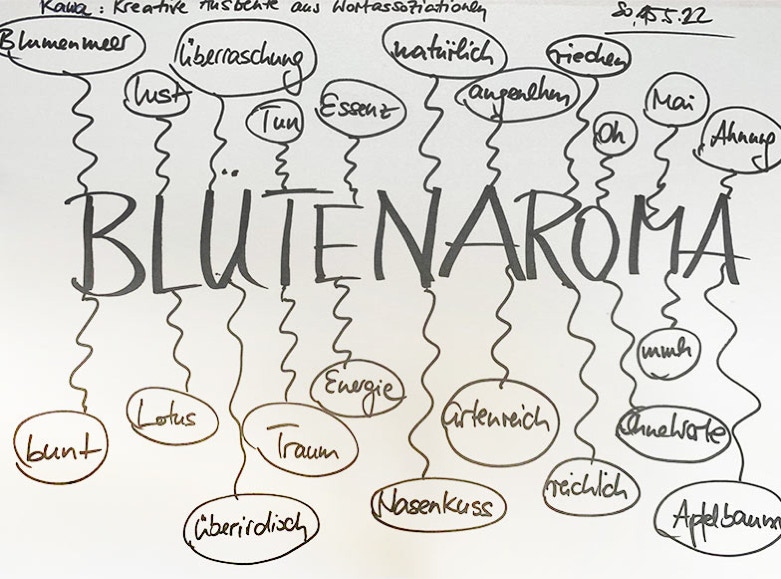 Kawa: Kreative Ausbeute aus Wortassoziationen
So, 15.5.22
Blumenmeer
lust
überraschung
Tun
Essenz
natürlich
angenehm
riechen
Oh
Mai
Ahnung
BLÜTENAROMA
bunt
Lotus
überirdisch
Traum
Energie
Nasenkuss
artenreich
reichlich
OhneWorte
mmh
Apfelbaum